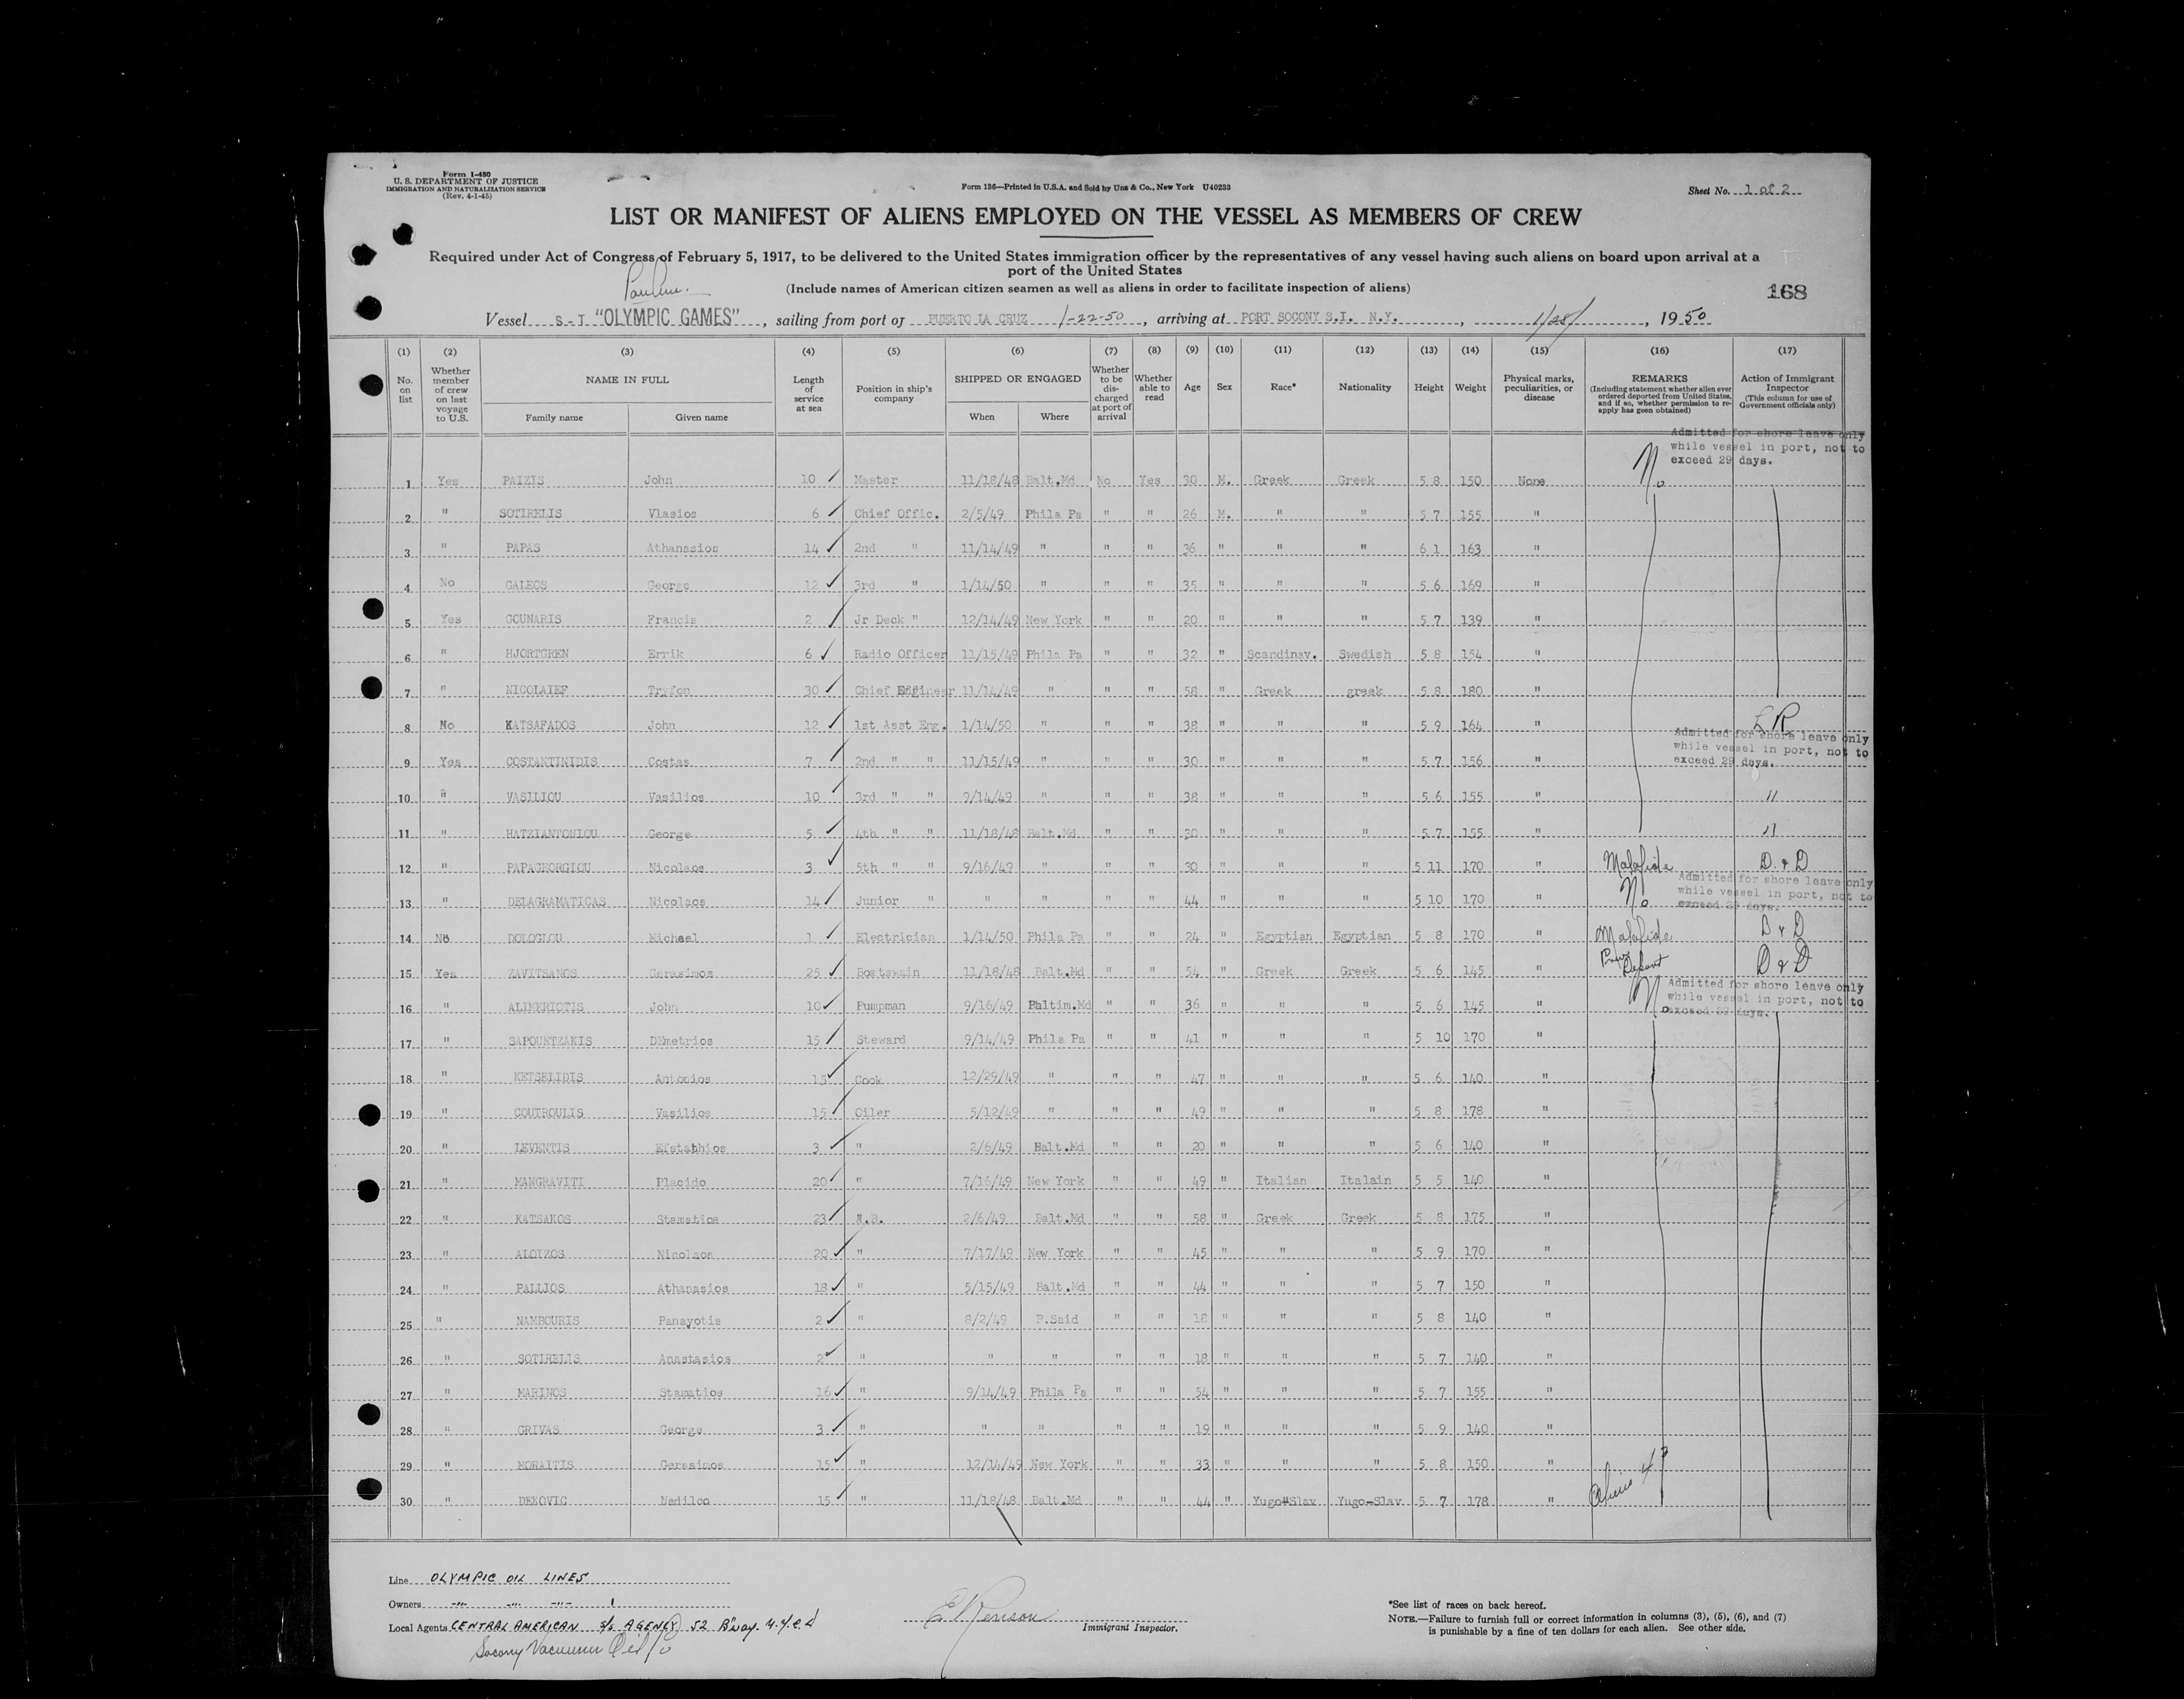 Form I-480
U. S. DEPARTMENT OF JUSTICE
IMMIGRATION AND NATURALIZATION SERVICE
(Rev. 4-1-45)
Form 136—Printed in U.S.A. and Sold by Unz & Co., New York U40233
Sheet No. 1 of 2
LIST OR MANIFEST OF ALIENS EMPLOYED ON THE VESSEL AS MEMBERS OF CREW
Required under Act of Congress of February 5, 1917, to be delivered to the United States immigration officer by the representatives of any vessel having such aliens on board upon arrival at a
port of the United States
(Include names of American citizen seamen as well as aliens in order to facilitate inspection of aliens)
168
Vessel S-T "OLYMPIC GAMES", sailing from port of PUERTO LA CRUZ 1-22-50, arriving at PORT SOCONY S.I. N.Y., 1/28/, 1950
(1) No. on list (2) Whether member of crew on last voyage to U.S. (3) NAME IN FULL Family name Given name (4) Length of service at sea (5) Position in ship's company (6) SHIPPED OR ENGAGED When Where (7) Whether to be discharged at port of arrival (8) Whether able to read (9) Age (10) Sex (11) Race* (12) Nationality (13) Height (14) Weight (15) Physical marks, peculiarities, or disease (16) REMARKS (Including statement whether alien ever ordered deported from United States, and if so, whether permission to re-apply has been obtained) (17) Action of Immigrant Inspector (This column for use of Government officials only)
Admitted for shore leave only
while vessel in port, not to
exceed 29 days.
1 Yes PAIZIS John 10 ✓ Master 11/18/48 Balt.Md No Yes 30 M. Greek Greek 5 8 150 None No
2 " SOTIRELIS Vlasios 6 ✓ Chief Offic. 2/5/49 Phila Pa " " 26 M. " " 5 7 155 "
3 " PAPAS Athanasios 14 ✓ 2nd " 11/14/49 " " " 36 " " " 6 1 163 "
4 No GALEOS George 12 ✓ 3rd " 1/14/50 " " " 35 " " " 5 6 169 "
5 Yes GOUNARIS Francis 2 ✓ Jr Deck " 12/14/49 New York " " 20 " " " 5 7 139 "
6 " HJORTGREN Errik 6 ✓ Radio Officer 11/15/49 Phila Pa " " 32 " Scandinav. Swedish 5 8 154 "
7 " NICOLAIEF Tryfon 30 ✓ Chief Engineer 11/14/49 " " " 58 " Greek greek 5 8 180 "
8 No KATSAFADOS John 12 ✓ 1st Asst Eng. 1/14/50 " " " 38 " " " 5 9 164 " LR
Admitted for shore leave only
while vessel in port, not to
exceed 29 days.
9 Yes COSTANTINIDIS Costas 7 ✓ 2nd " " 11/15/49 " " " 30 " " " 5 7 156 "
10 " VASILIOU Vasilios 10 ✓ 3rd " " 9/14/49 " " " 38 " " " 5 6 155 " "
11 " HATZIANTONIOU George 5 ✓ 4th " " 11/18/48 Balt.Md " " 30 " " " 5 7 155 " "
12 " PAPAGEORGIOU Nicolaos 3 ✓ 5th " " 9/16/49 " " " 30 " " " 5 11 170 " Malafide D & D
Admitted for shore leave only
while vessel in port, not to
exceed 29 days.
13 " DELAGRAMATICAS Nicolaos 14 ✓ Junior " " " " " 44 " " " 5 10 170 " No
14 No DOLOGLOU Michael 1 ✓ Electrician 1/14/50 Phila Pa " " 24 " Egyptian Egyptian 5 8 170 " Malafide D & D
15 Yes ZAVITSANOS Gerasimos 25 ✓ Boatswain 11/18/48 Balt.Md " " 54 " Greek Greek 5 6 145 " Prev Deport D & D
Admitted for shore leave only
while vessel in port, not to
exceed 29 days.
16 " ALIMERIOTIS John 10 ✓ Pumpman 9/16/49 Baltim.Md " " 36 " " " 5 6 145 " No
17 " SAPOUNTZAKIS DEmetrios 15 ✓ Steward 9/14/49 Phila Pa " " 41 " " " 5 10 170 "
18 " KETSELIDIS Antonios 15 ✓ Cook 12/29/49 " " " 47 " " " 5 6 140 "
19 " COUTROULIS Vasilios 15 ✓ Oiler 5/12/49 " " " 49 " " " 5 8 178 "
20 " LEVENTIS Efstathios 3 ✓ " 2/6/49 Balt.Md " " 20 " " " 5 6 140 "
21 " MANGRAVITI Placido 20 ✓ " 7/16/49 New York " " 49 " Italian Italain 5 5 140 "
22 " KATSAKOS Stamatios 23 ✓ A.B. 2/6/49 Balt.Md " " 58 " Greek Greek 5 8 175 "
23 " ALOIZOS Nicolaos 20 ✓ " 7/17/49 New York " " 45 " " " 5 9 170 "
24 " PALLIOS Athanasios 18 ✓ " 5/15/49 Balt.Md " " 44 " " " 5 7 150 "
25 " NAMBOURIS Panayotis 2 ✓ " 8/2/49 P.Said " " 18 " " " 5 8 140 "
26 " SOTIRELIS Anastasios 2 ✓ " " " " " 18 " " " 5 7 140 "
27 " MARINOS Stamatios 16 ✓ " 9/14/49 Phila Pa " " 54 " " " 5 7 155 "
28 " GRIVAS George 3 ✓ " " " " " 19 " " " 5 9 140 "
29 " MORAITIS Gerasimos 15 ✓ " 12/14/49 New York " " 33 " " " 5 8 150 "
30 " DEKOVIC Nedilco 15 ✓ " 11/18/48 Balt.Md " " 44 " Yugo-Slav Yugo-Slav 5 7 178 "
Line OLYMPIC OIL LINES
Owners -"- -"- -"-
Local Agents CENTRAL AMERICAN S/S AGENCY 52 B'way. N.Y.C.
Socony Vacuum Oil Co
Immigrant Inspector.
*See list of races on back hereof.
NOTE.—Failure to furnish full or correct information in columns (3), (5), (6), and (7)
is punishable by a fine of ten dollars for each alien. See other side.